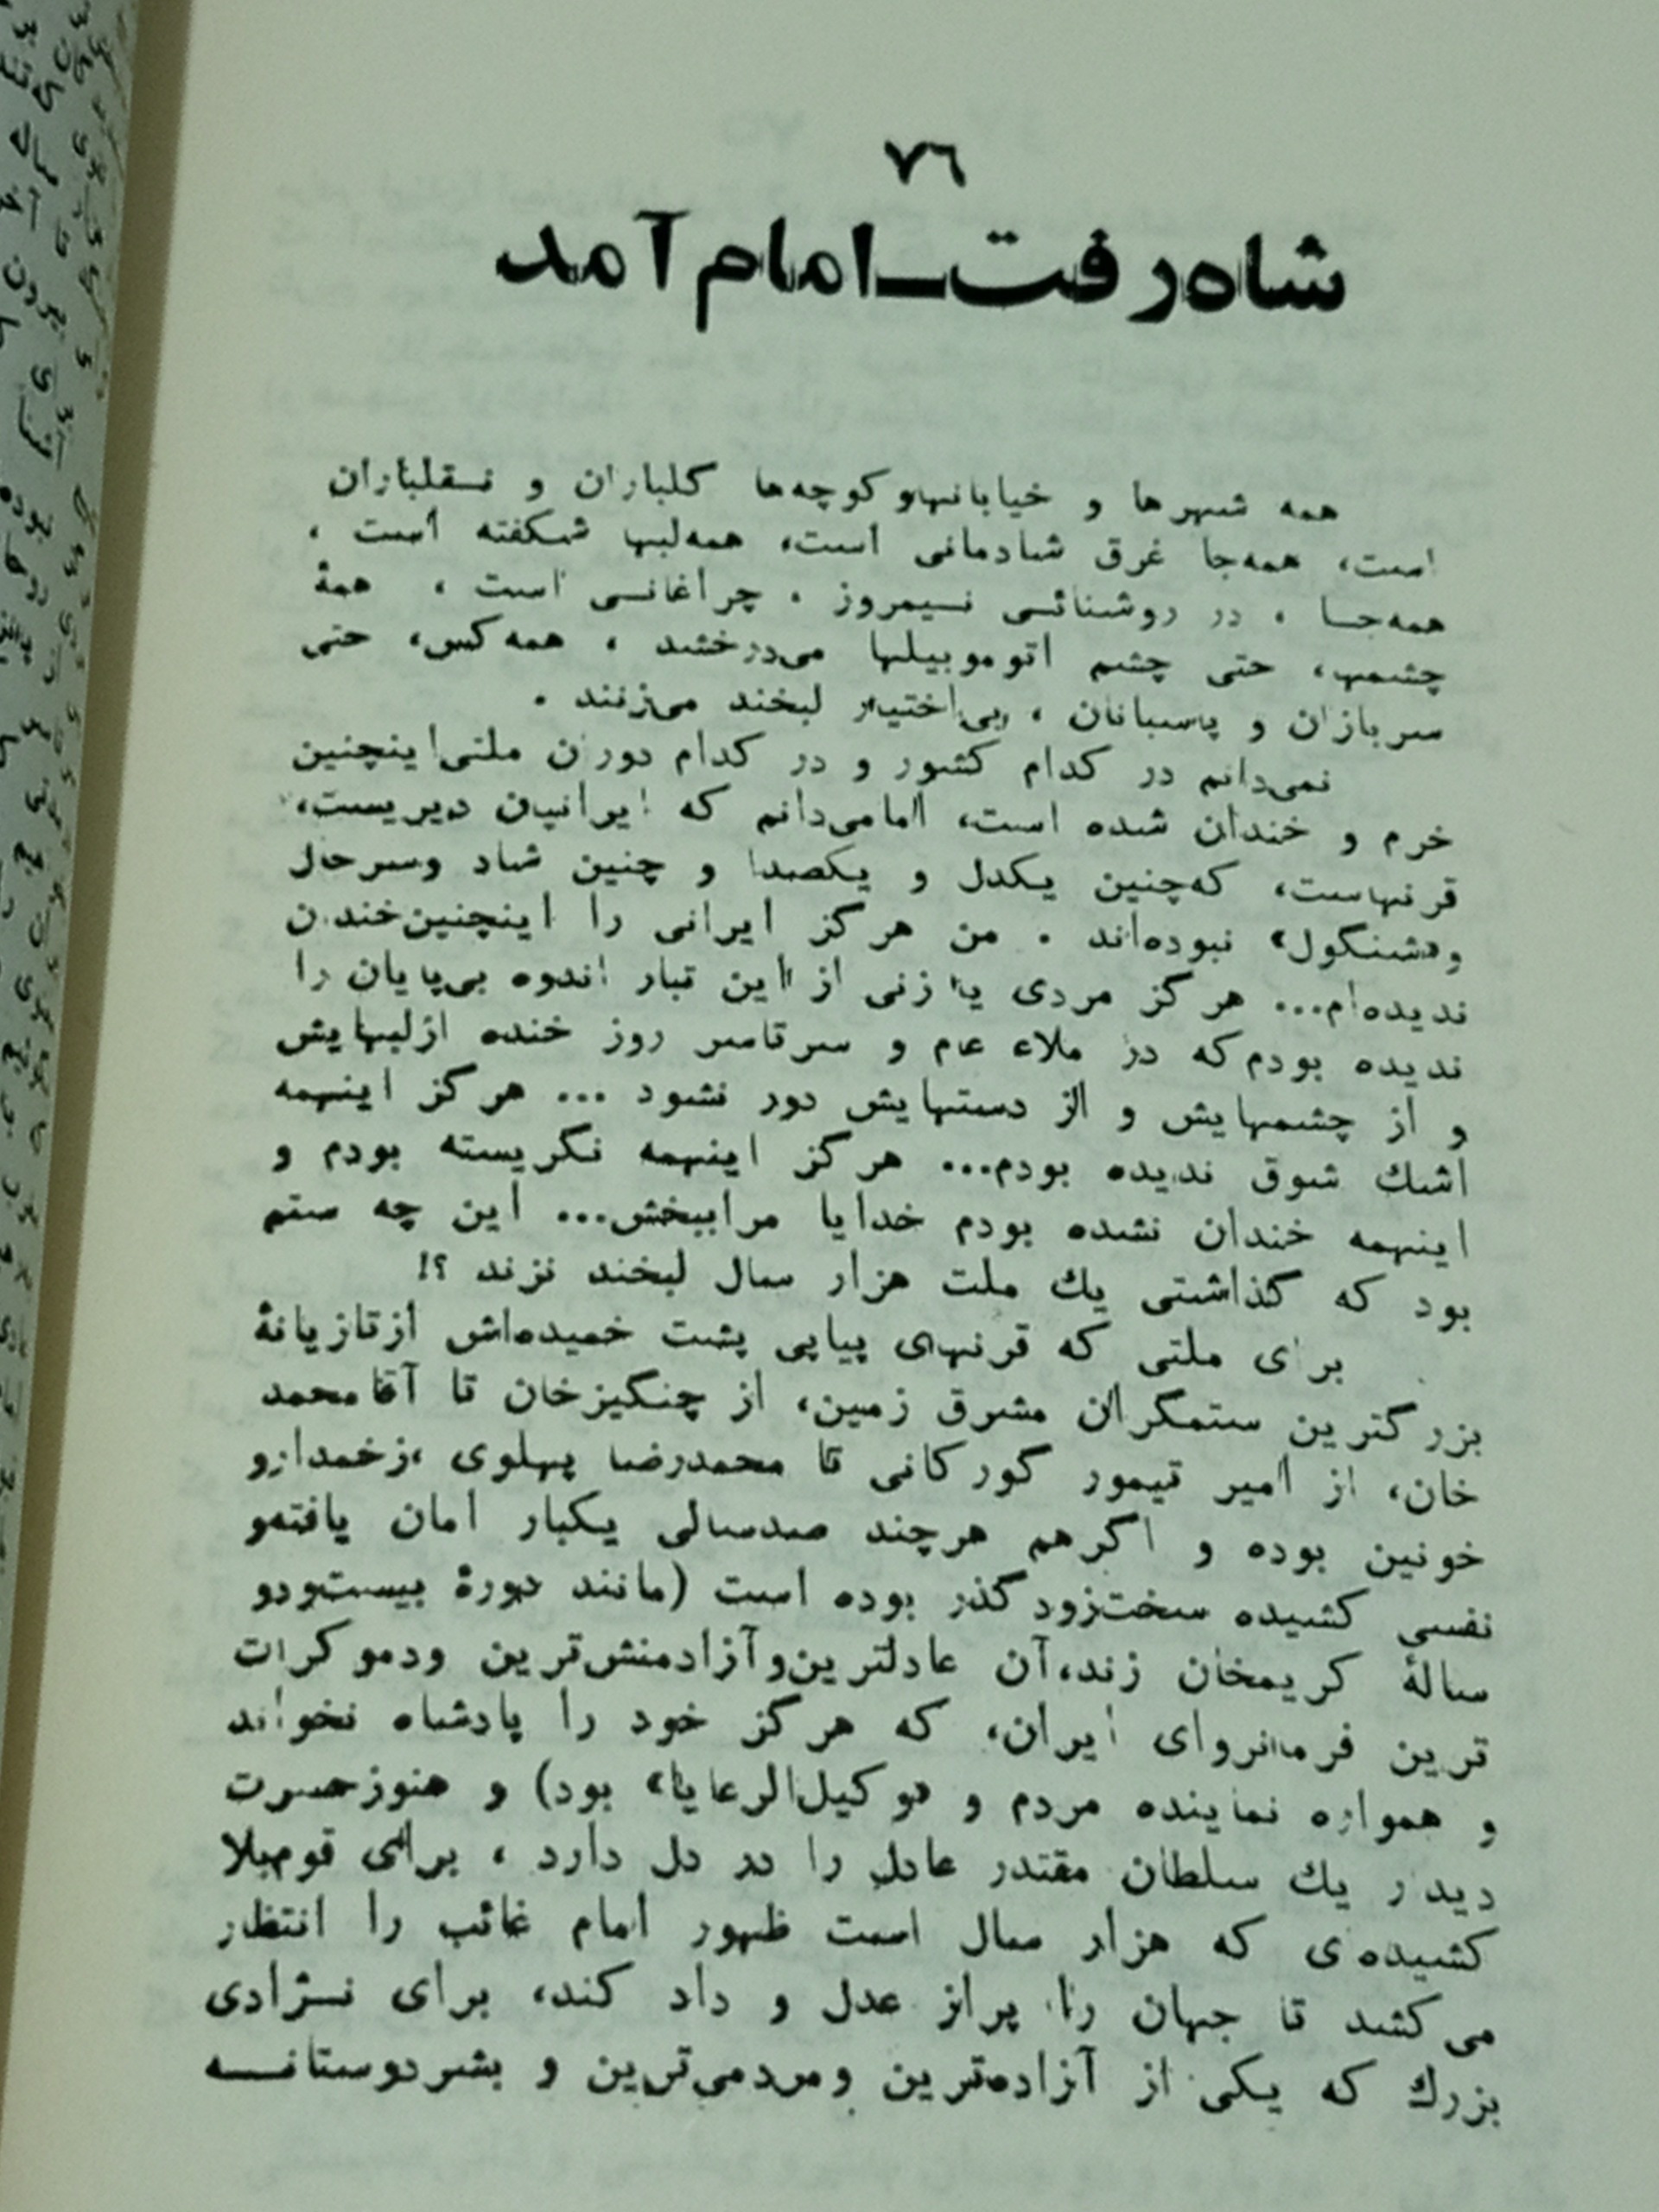 ٧٦
شاه رفت ـ امام آمد
همه شهرها و خیابانهاو کوچه‌ها گلباران و نـقلباران
است، همه‌جا غرق شادمانی است، همه‌لبها شکفته است ،
همه‌جـا ، در روشنائـی نـیمروز ، چراغانـی است ، همهٔ
چشمها، حتی چشم اتوموبیلها می‌درخشد ، همه‌کس، حتی
سربازان و پاسبانان ، بی‌اختیار لبخند می‌زنند .
نمی‌دانم در کدام کشور و در کدام دوران ملتی‌اینچنین
خرم و خندان شده است، امامی‌دانم که ایرانیان دیریست،
قرنهاست، که‌چنین یکدل و یکصدا و چنین شاد وسرحال
و«شنگول» نبوده‌اند . من هرگز ایرانی را اینچنین‌خندان
ندیده‌ام... هرگز مردی یا زنی از این تبار اندوه بی‌پایان را
ندیده بودم‌که در ملاء عام و سرتاسر روز خنده ازلبهایش
و از چشمهایش و از دستهایش دور نشود ... هرگز اینهمه
اشك شوق ندیده بودم... هرگز اینهمه نگریسته بودم و
اینهمه خندان نشده بودم خدایا مراببخش... این چه ستم
بود که گذاشتی یك ملت هزار سال لبخند نزند ؟!
برای ملتی که قرنهای پیاپی پشت خمیده‌اش ازتازیانهٔ
بزرگترین ستمگران مشرق زمین، از چنگیزخان تا آقامحمد
خان، از امیر تیمور گورکانی تا محمدرضا پهلوی ،زخمدارو
خونین بوده و اگرهم هرچند صدسالی یکبار امان یافته‌و
نفسی کشیده سخت‌زودگذر بوده است (مانند دورهٔ بیست‌ودو
سالهٔ کریمخان زند،آن عادلترین‌وآزادمنش‌ترین ودموکرات
ترین فرمانروای ایران، که هرگز خود را پادشاه نخواند
و همواره نماینده مردم و «وکیل‌الرعایا» بود) و هنوزحسرت
دیدار یك سلطان مقتدر عادل را در دل دارد ، برای قوم‌بلا
کشیده‌ی که هزار سال است ظهور امام غائب را انتظار
می‌کشد تا جهان را پراز عدل و داد کند، برای نـژادی
بزرگ که یکی از آزاده‌ترین ومردمی‌ترین و بشردوستانـه